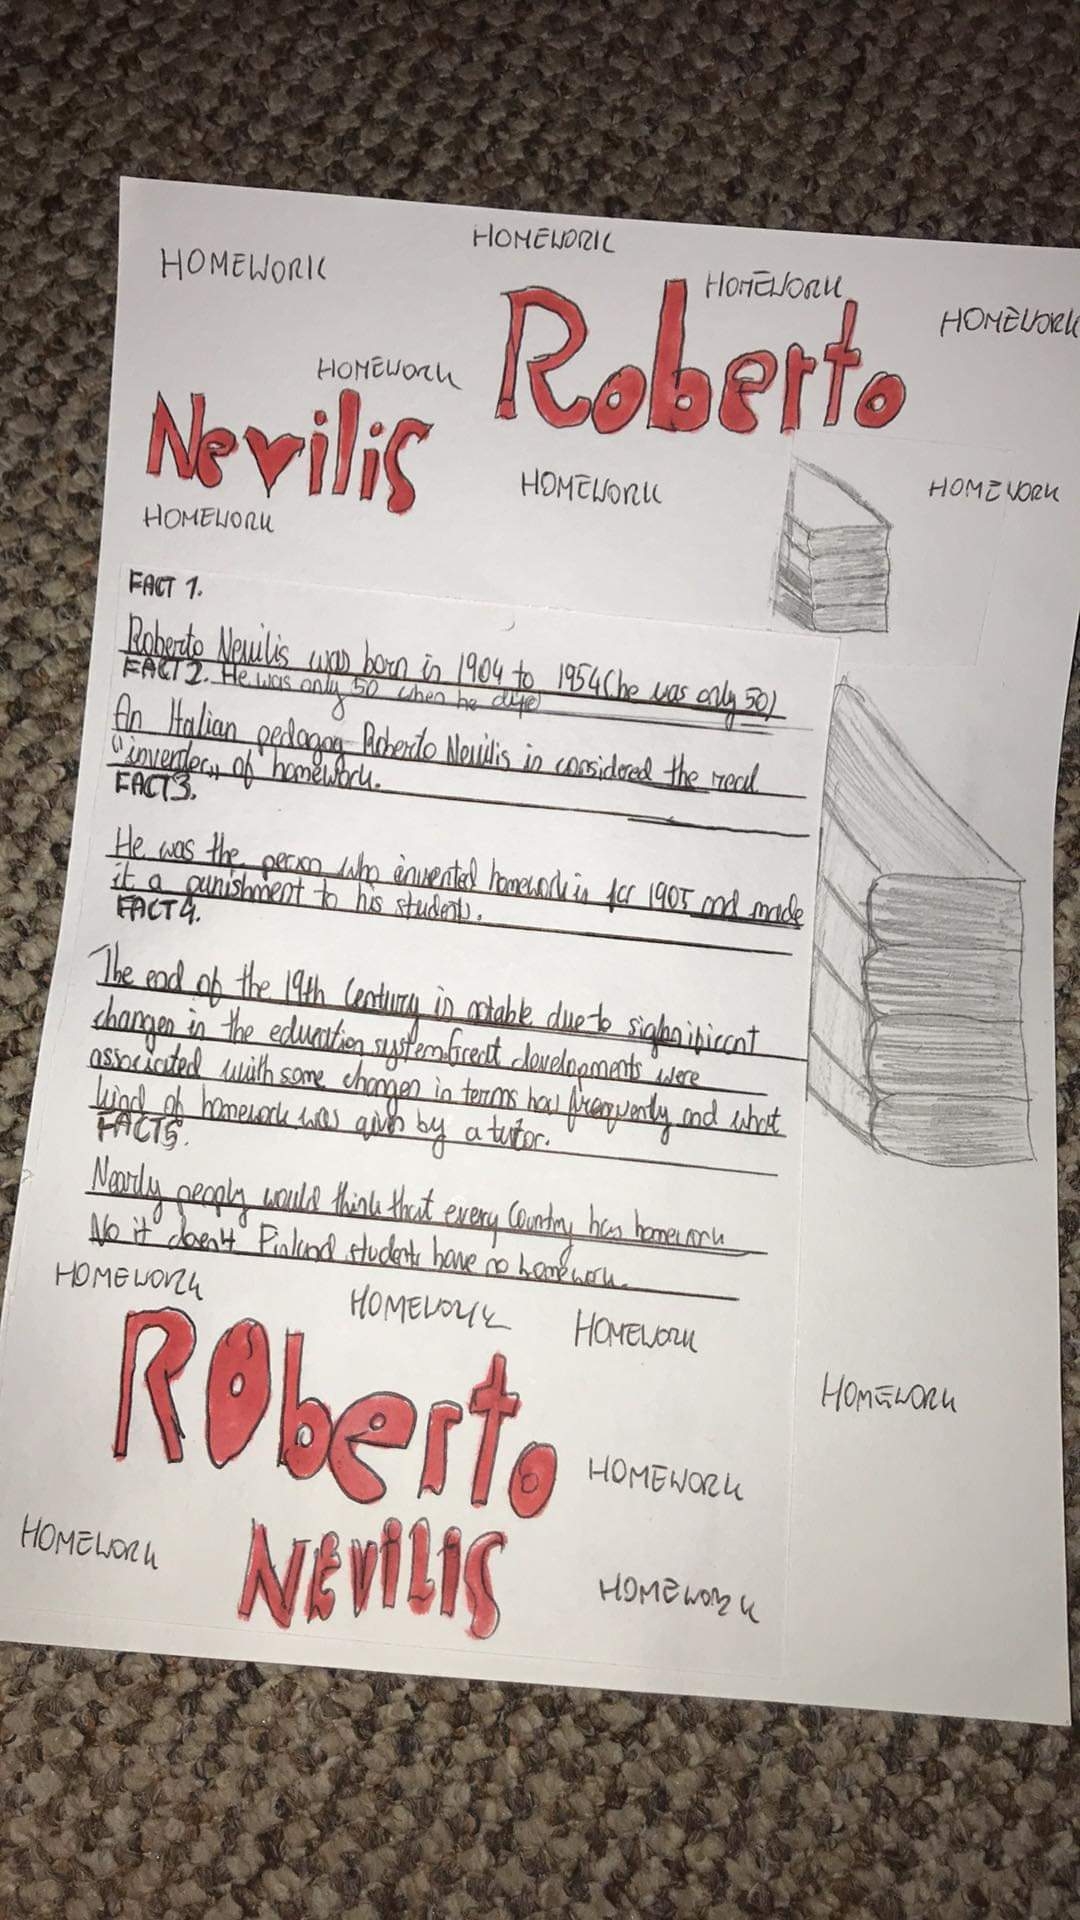 HOMEWORK
HOMEWORK
HOMEWORK
HOMEWORK
Roberto
HOMEWORK
Nevilis
HOMEWORK
HOMEWORK
HOMEWORK
FACT 1.
Roberto Nevilis was born in 1904 to 1954 (he was only 50)
FACT 2. He was only 50 when he
An Italian pedagog Roberto Nevilis is considered the real
"inventer„ of homework.
FACT3.
He was the person who invented homework in 1905 and made
it a punishment to his students.
FACT4.
The end of the 19th Century is notable due to
changes in the education system. Great developments were
associated with some changes in terms how frequently and what
kind of homework was by a tutor.
FACT5.
Nearly would think that every Country has homework
No it Finland students have no homework.
HOMEWORK
HOMEWORK
HOMEWORK
ROberto
HOMEWORK
HOMEWORK
HOMEWORK
NEViLIS
HOMEWORK